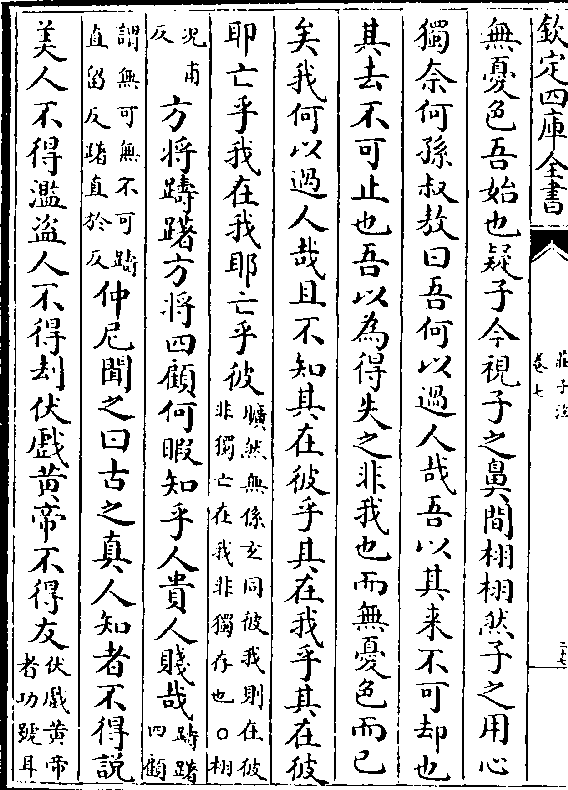 欽定四庫全書
莊子注
卷七
無憂色吾始也疑子今視子之鼻間栩栩然子之用心
獨奈何孫叔敖曰吾何以過人哉吾以其来不可却也
其去不可止也吾以為得失之非我也而無憂色而已
矣我何以過人哉且不知其在彼乎其在我乎其在彼
耶亡乎我在我耶亡乎彼
曠然無係玄同彼我則在彼
非獨亡在我非獨存也○栩
况甫
反
方將躊躇方將四顧何暇知乎人貴人賤哉
躊躇
四顧
謂無可無不可躊
直留反躇直於反
仲尼聞之曰古之真人知者不得說
美人不得濫盗人不得刦伏戲黄帝不得友
伏戲黄帝
者功號耳